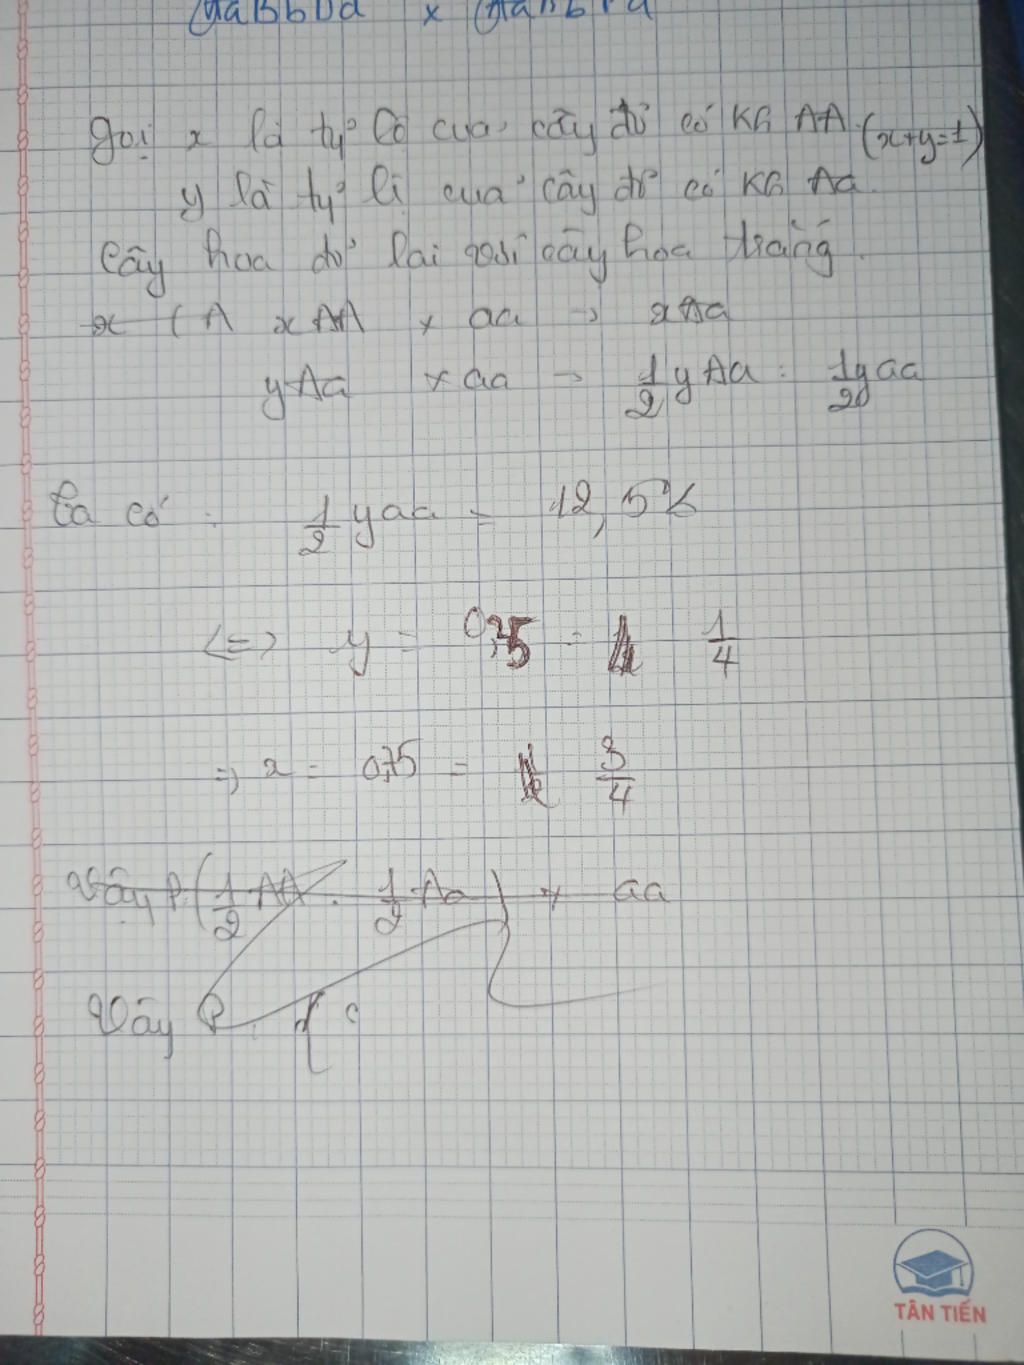 AaBbDd x AaBbDd
gọi x là tỷ lệ của cây đỏ có KG AA (x+y=1)
y là tỷ lệ của cây đỏ có KG Aa.
Cây hoa đỏ lai với cây hoa trắng.
x (A xAA x aa → xAa
yAa x aa → 1/2 y Aa : 1/2 y aa
Ta có : 1/2 y aa = 12,5%
<=> y = 0,25 = 1/4
=> x = 0,75 = 3/4
Vậy P (1/2 AA : 1/2 Aa) x aa
Vậy P
TÂN TIẾN